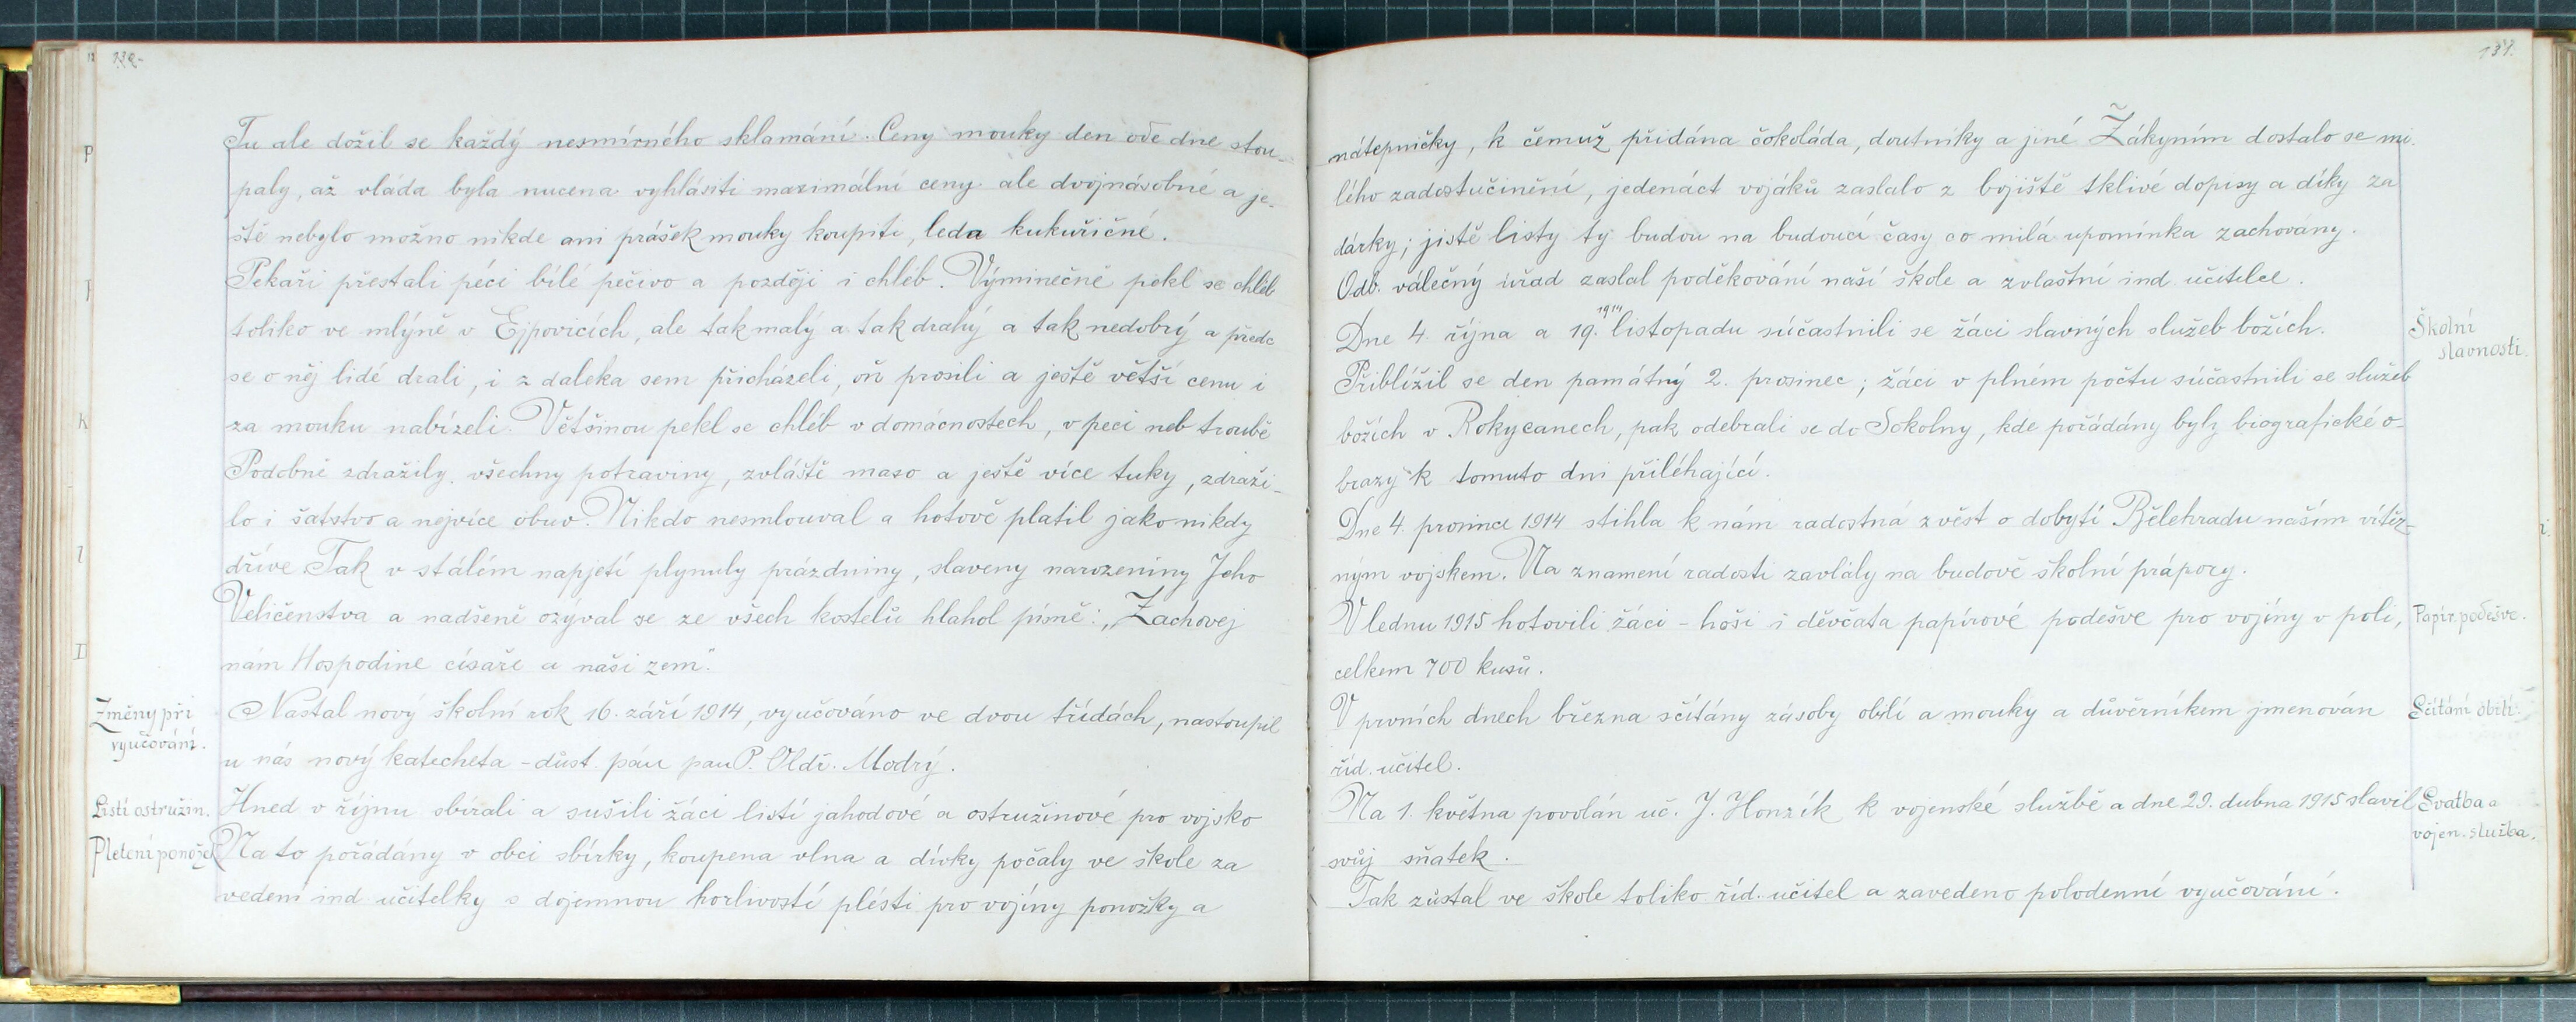 130.
Tu ale dožil se každý nesmírného sklamání. Ceny mouky den ode dne stou-
paly, až vláda byla nucena vyhlásiti maximální ceny ale dvojnásobné a je-
ště nebylo možno nikde ani prášek mouky koupiti, leda kukuřičné.
Pekaři přestali péci bílé pečivo a později i chléb. Výminečně pekl se chléb
toliko ve mlýně v Ejpovicích, ale tak malý a tak drahý a tak nedobrý a předc
se o něj lidé drali, i z daleka sem přicházeli, oň prosili a ještě větší cenu i
za mouku nabízeli. Většinou pekl se chléb v domácnostech, v peci neb troubě
Podobně zdražily všechny potraviny, zvláště maso a ještě více tuky, zdraži-
lo i šatstvo a nejvíce obuv. Nikdo nesmlouval a hotově platil jako nikdy
dříve Tak v stálém napjetí plynuly prázdniny, slaveny narozeniny Jeho
Veličenstva a nadšeně ozýval se ze všech kostelů hlahol písně: „Zachovej
nám Hospodine císaře a naši zem."
Změny při
vyučování.
Nastal nový školní rok 16. září 1914, vyučováno ve dvou třídách, nastoupil
u nás nový katecheta - důst. pán pan P. Oldř. Modrý.
Listí ostružin.
Hned v říjnu sbírali a sušili žáci listí jahodové a ostružinové pro vojsko
Pletení ponožek
Na to pořádány v obci sbírky, koupena vlna a dívky počaly ve škole za
vedení ind. učitelky s dojemnou horlivostí plésti pro vojíny ponožky a
131.
nátepničky, k čemuž přidána čokoláda, doutníky a jiné Žákyním dostalo se mi-
lého zadostučinění, jedenáct vojáků zaslalo z bojiště tklivé dopisy a díky za
dárky; jistě listy ty budou na budoucí časy co milá upomínka zachovány.
Odb. válečný úřad zaslal poděkování naší škole a zvlaštní ind. učitelce.
Školní
slavnosti.
1914
Dne 4. října a 19. listopadu súčastnili se žáci slavných služeb božích.
Přiblížil se den památný 2. prosinec; žáci v plném počtu súčastnili se služeb
božích v Rokycanech, pak odebrali se do Sokolny, kde pořádány byly biografické o-
brazy k tomuto dni přiléhající.
Dne 4. prosince 1914 stihla k nám radostná zvěst o dobytí Bělehradu naším vítěz-
ným vojskem. Na znamení radosti zavlály na budově školní prápory.
Papír. podešve.
V lednu 1915 hotovili žáci - hoši i děvčata papírové podešve pro vojíny v poli,
celkem 700 kusů.
Sčítání obilí.
V prvních dnech března sčítány zásoby obilí a mouky a důvěrníkem jmenován
říd. učitel.
Svatba a
vojen. služba.
Na 1. května povolán uč. J. Honzík k vojenské službě a dne 29. dubna 1915 slavil
svůj sňatek.
Tak zůstal ve škole toliko říd. učitel a zavedeno polodenní vyučování.